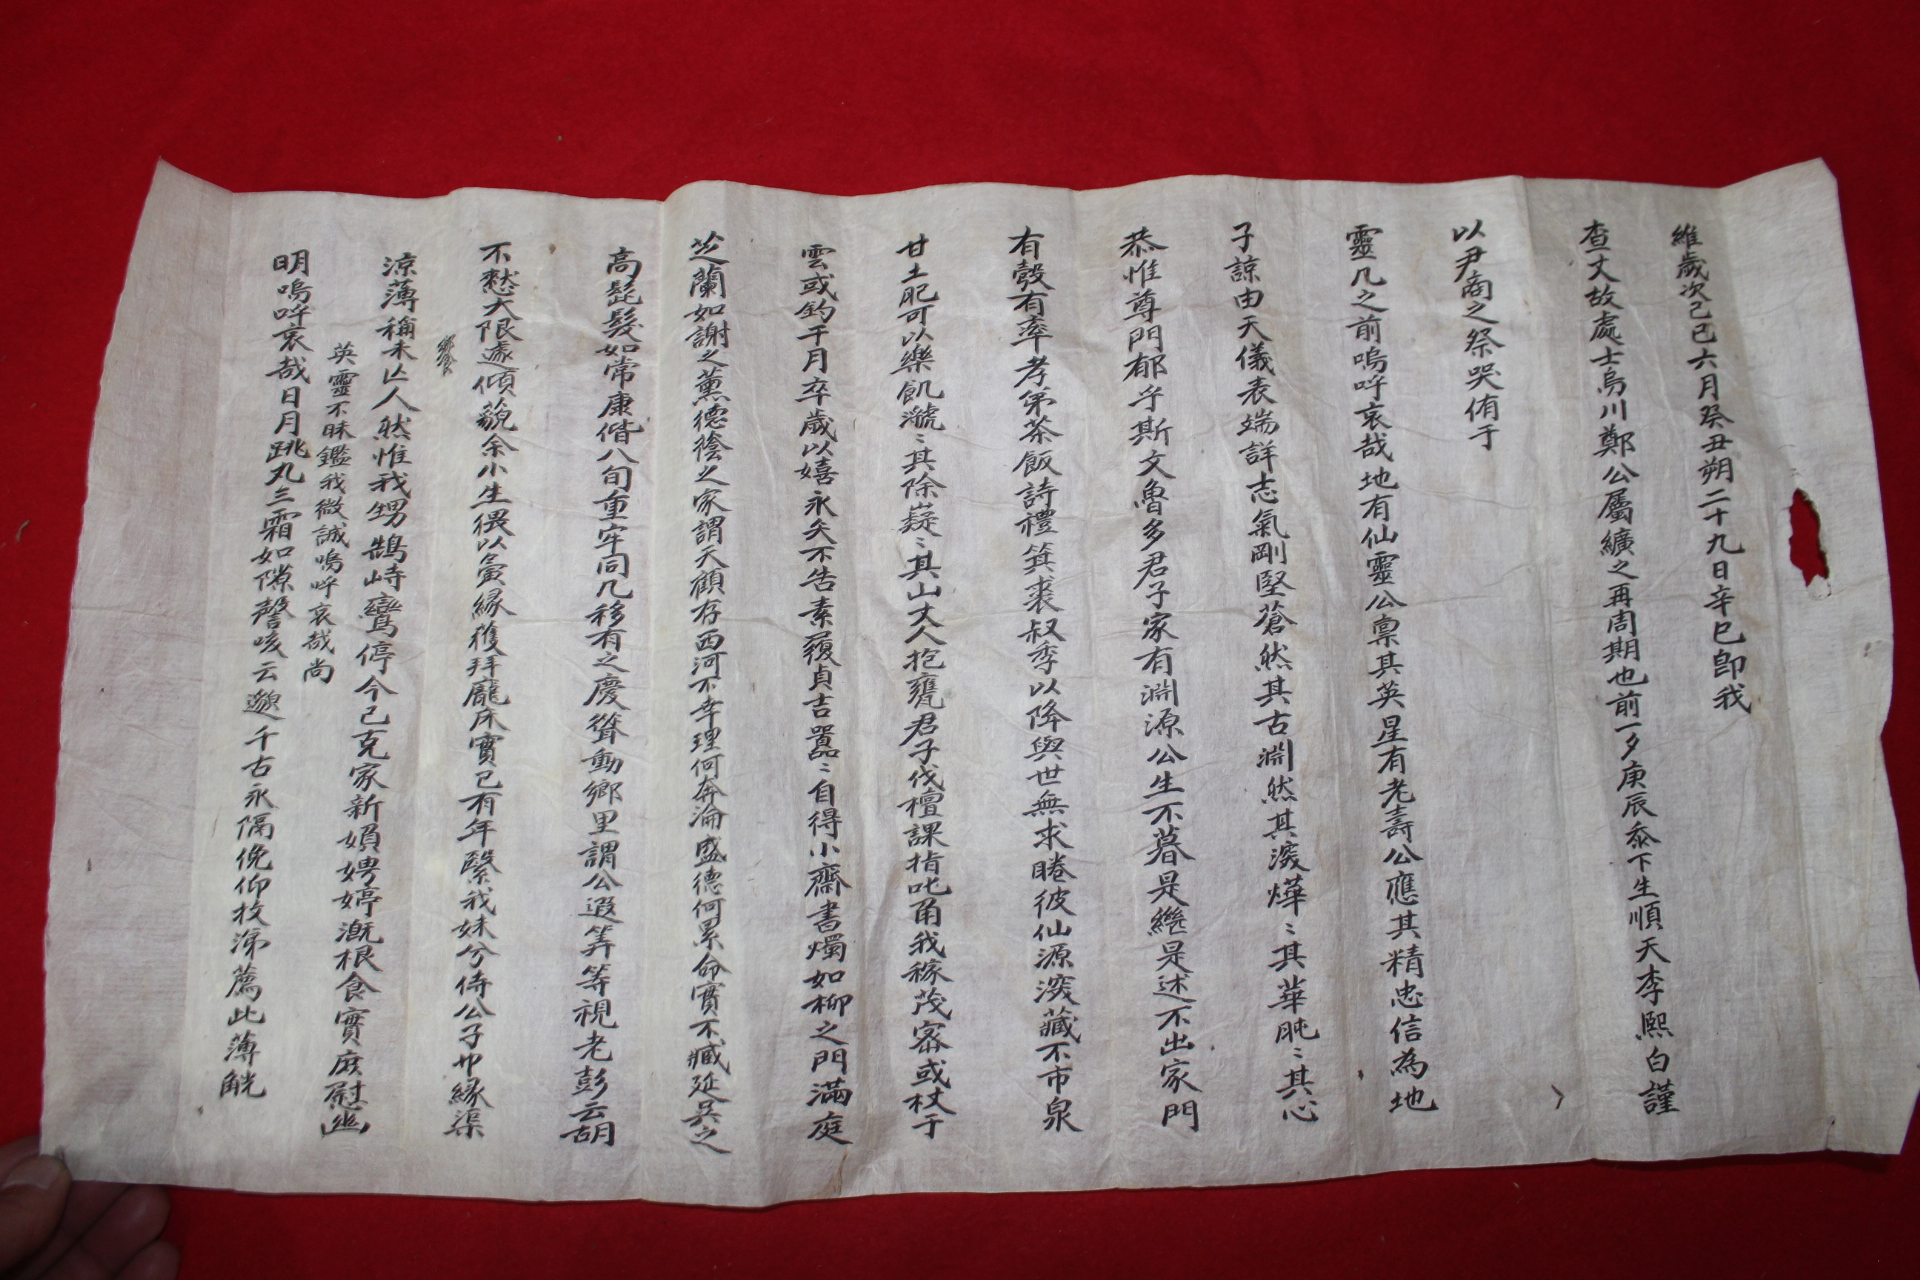 維歲次己巳六月癸丑朔二十九日辛巳卽我
查丈故處士烏川鄭公屬纊之再周期也前一夕庚辰忝下生順天李熙白謹
以尹商之祭哭侑于
靈几之前嗚呼哀哉地有仙靈公稟其英星有老壽公應其精忠信為地
子諒由天儀表端詳志氣剛堅蒼然其古淵然其深燁〻其華肫〻其心
恭惟尊門郁乎斯文魯多君子家有淵源公生不暮是繼是述不出家門
有㝅有率孝弟茶飯詩禮箕裘叔季以降與世無求睠彼仙源深藏不市泉
甘土肥可以樂飢㶁〻其除嶷〻其山丈人抱甕君子伐檀課指叱甬我稼茂密或杖于
雲或釣于月卒歲以嬉永矢不告素履貞吉囂〻自得小齋書燭如柳之門滿庭
芝蘭如謝之薰德蔭之家謂天顧存西河不幸理何奔淪盛德何累命實不臧延吳之
高髭髮如常康偕八旬重牢同几移有之慶聳動鄉里謂公遐筭等視老彭云胡
不憖大限遽傾藐余小生猥以夤緣獲拜龐床實已有年繄我妹兮侍公子巾緣渠
涼薄稱未亡人然惟我甥鵠峙鸞停今已克家新嬪娉婷漑根食實庶慰幽
明嗚呼哀哉日月跳丸三霜如隙謦咳云邈千古永隔俛仰抆涕薦此薄觥
英靈不昧鑑我微誠嗚呼哀哉尚